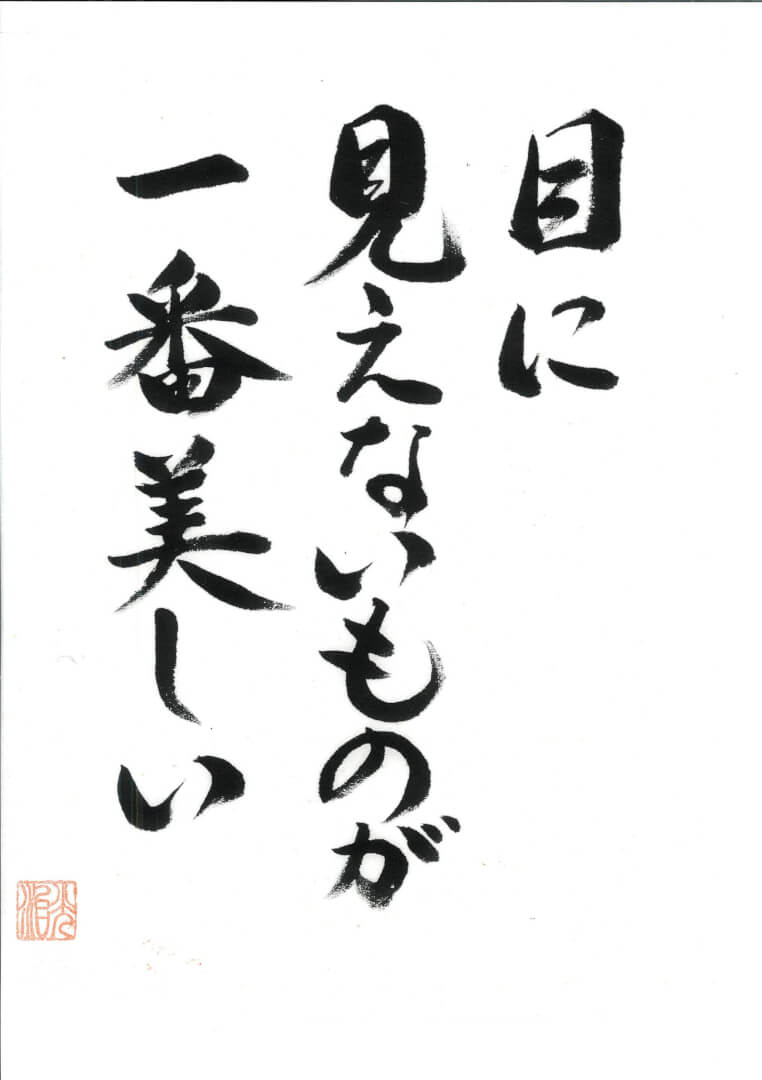 目に
見えないものが
一番美しい